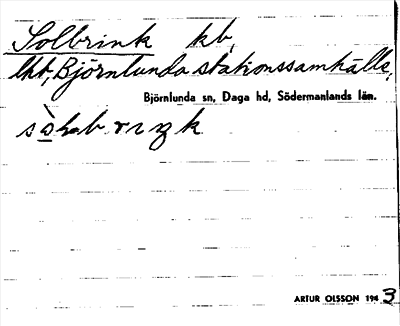 Solbrink kb,
lht, Björnlunda stationssamhälle,
Björnlunda sn, Daga hd, Södermanlands län.
ARTUR OLSSON 1943